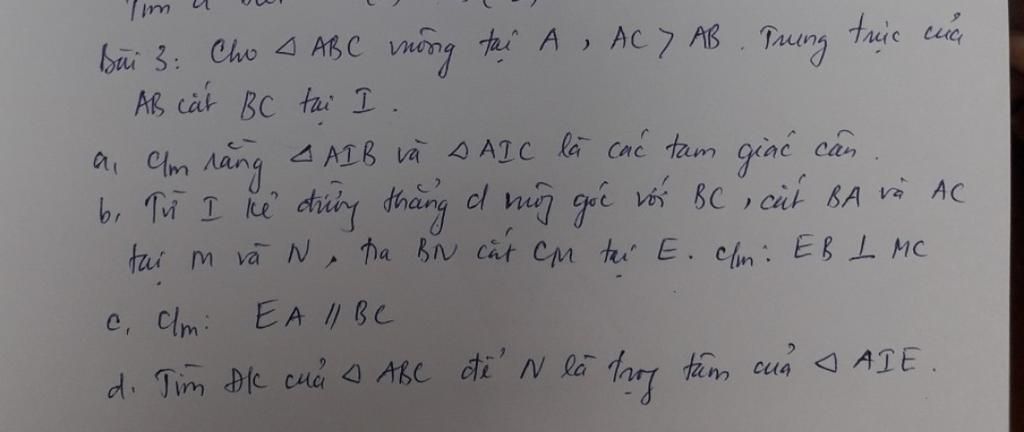 Tìm
Bài 3: Cho △ ABC vuông tại A, AC > AB. Trung trực của
AB cắt BC tại I.
a, C/m rằng △ AIB và △ AIC là các tam giác cân.
b, Từ I kẻ đường thẳng d vuông góc với BC, cắt BA và AC
tại M và N, tia BN cắt CM tại E. C/m: EB ⊥ MC
c, C/m: EA // BC
d. Tìm đk của △ ABC để N là trọng tâm của △ AIE.